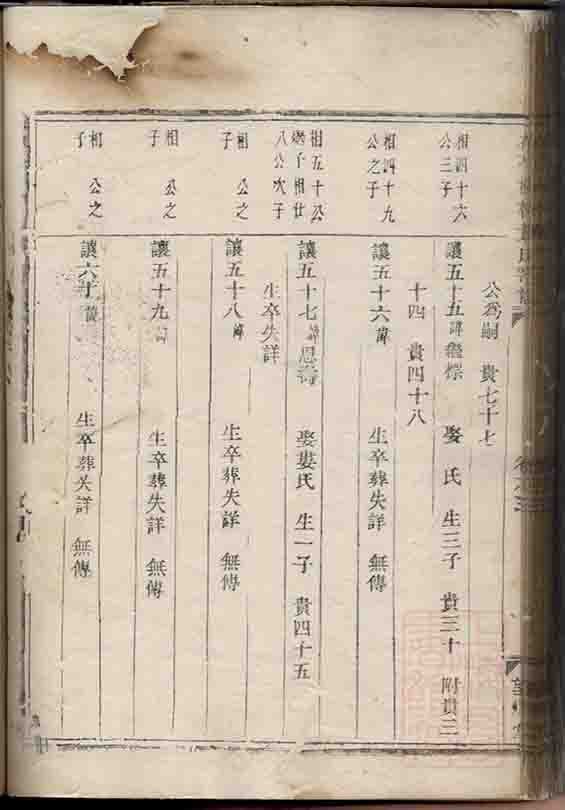 公爲嗣 貴七十七
相四十六
公三子
讓五十五諱 娶 氏 生三子 貴三十 附貴三
十四 貴四十八
相四十九
公之子
讓五十六諱 生卒葬失詳 無傳
相五十公
繼子相廿
八公次子
讓五十七諱思 娶婁氏 生一子 貴四十五
生卒失詳
相 公之
子
讓五十八諱 生卒葬失詳 無傳
相 公之
子
讓五十九諱 生卒葬失詳 無傳
相 公之
子
讓六十諱 生卒葬失詳 無傳